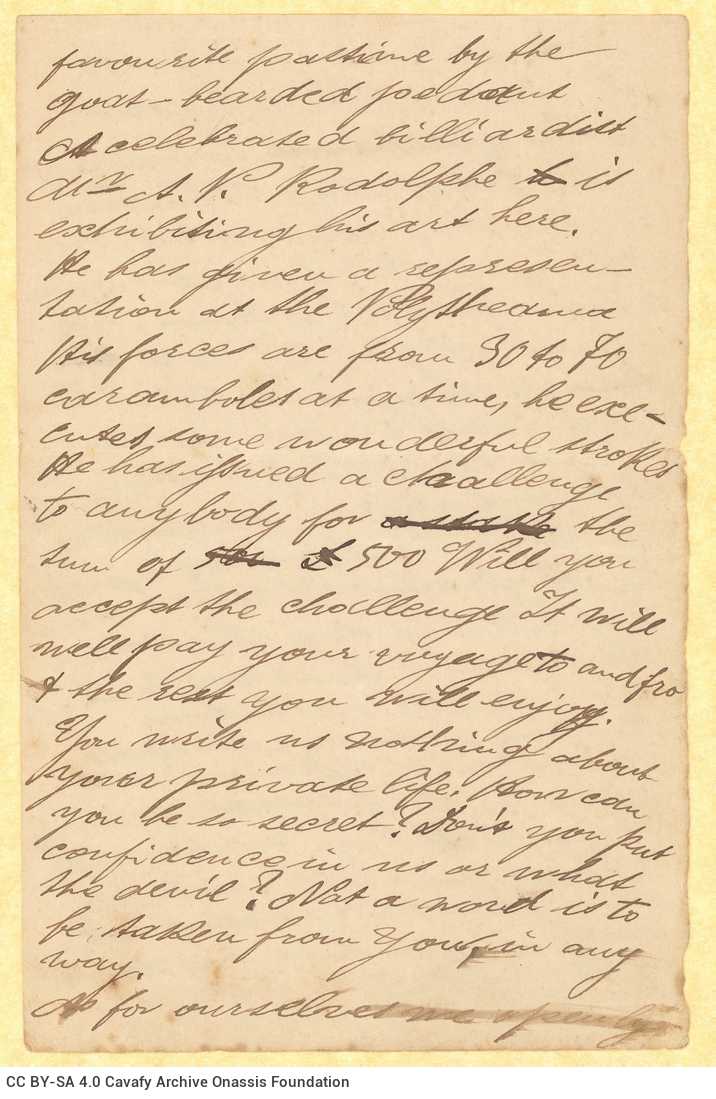 favourite pastime by the
goat-bearded pedant
A celebrated billiardist
Mr A. V. Rodolphe to is
exhibiting his art here.
He has given a represen-
tation at the Polytheama
His forces are from 30 to 70
caramboles at a time, he exe-
cutes some wonderful strokes
He has issued a challenge
to anybody for a stake the
sum of £ 500 Will you
accept the challenge It will
well pay your voyage to and fro
& the rest you will enjoy.
You write us nothing about
your private life. How can
you be so secret? Don't you put
confidence in us or what
the devil? Not a word is to
be taken from you, in any
way.
As for ourselves we openly
CC BY-SA 4.0 Cavafy Archive Onassis Foundation